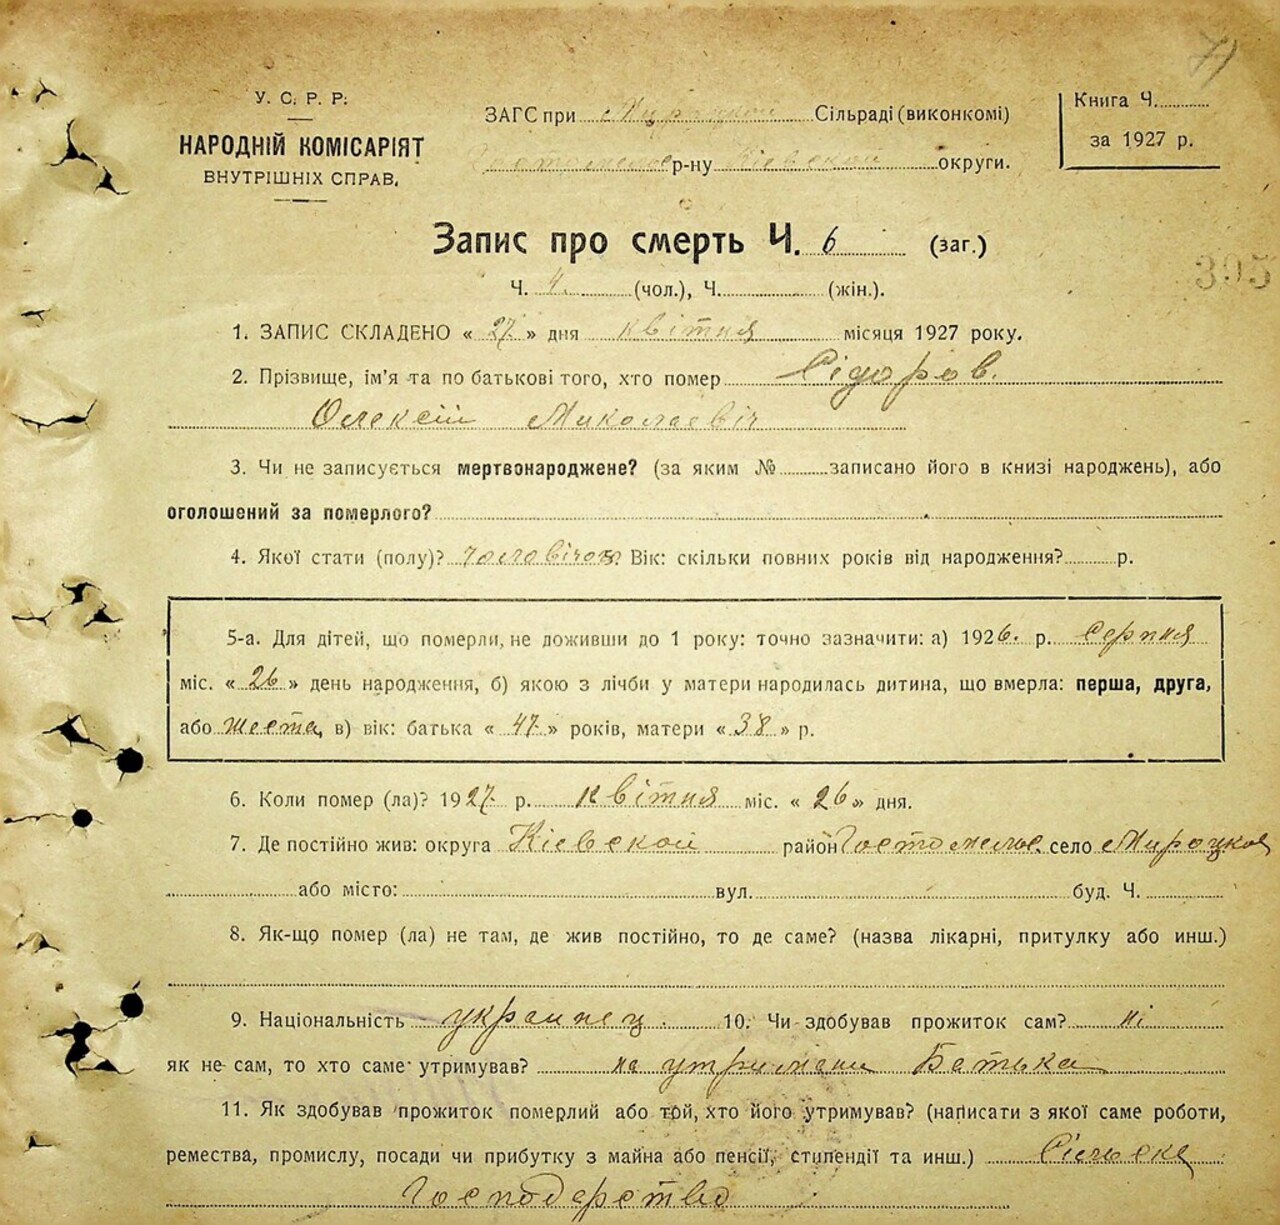 71
У. С. Р. Р.
НАРОДНІЙ КОМІСАРІЯТ
ВНУТРІШНІХ СПРАВ.
ЗАГС при Мироцкой Сільраді (виконкомі)
Гостомельс р-ну Кіевской округи.
Книга Ч.
за 1927 р.
Запис про смерть Ч. 6 (заг.)
395
Ч. 4. (чол.), Ч. (жін.).
1. ЗАПИС СКЛАДЕНО « 27 » дня квітня місяця 1927 року.
2. Прізвище, ім'я та по батькові того, хто помер Сідоров.
Олексій Миколаевіч
3. Чи не записується мертвонароджене? (за яким № записано його в книзі народжень), або
оголошений за померлого?
4. Якої стати (полу)? Вік: скільки повних років від народження? р.
5-а. Для дітей, що померли, не доживши до 1 року: точно зазначити: а) 1926. р. Серпня
міс. « 26 » день народження, б) якою з лічби у матери народилась дитина, що вмерла: перша, друга,
або шеста, в) вік: батька « 47 » років, матери « 38 » р.
6. Коли помер (ла)? 1927 р. квітня міс. « 26 » дня.
7. Де постійно жив: округа Кіевской район Гостомельс. село Мироцкоя
або місто: вул. буд. Ч.
8. Як-що помер (ла) не там, де жив постійно, то де саме? (назва лікарні, притулку або инш.)
9. Національність украинец. 10. Чи здобував прожиток сам? ні
як не сам, то хто саме утримував? на утримани Батька
11. Як здобував прожиток померлий або той, хто його утримував? (написати з якої саме роботи,
ремества, промислу, посади чи прибутку з майна або пенсії, стипендії та инш.) Сільске
Господарство